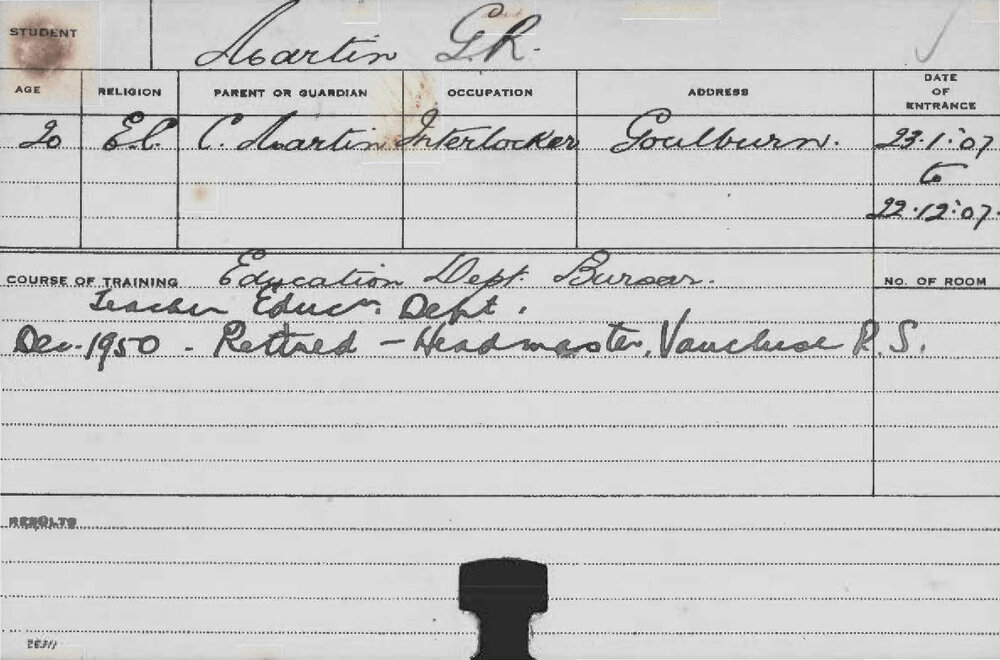 STUDENT Martin G.R.
AGE RELIGION PARENT OR GUARDIAN OCCUPATION ADDRESS DATE OF ENTRANCE
20 E.C. C. Martin Interlocker Goulburn. 23.1.'07
to
22.12.'07.
COURSE OF TRAINING Education Dept. Bursar. NO. OF ROOM
Teacher Educn. Dept.
Dec. 1950 - Retired - Headmaster, Vaucluse P.S.
RESULTS